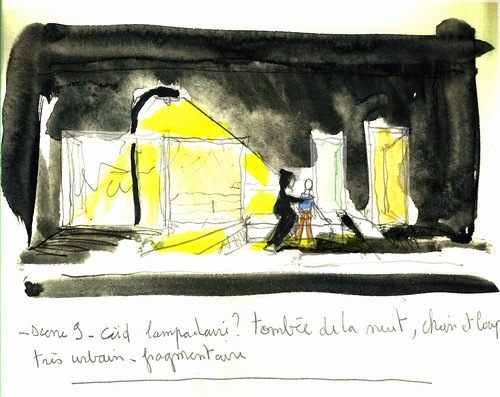 - Scene 9 - Caïd lampadaire? tombée de la nuit, chien et loup
très urbain - fragmentaire